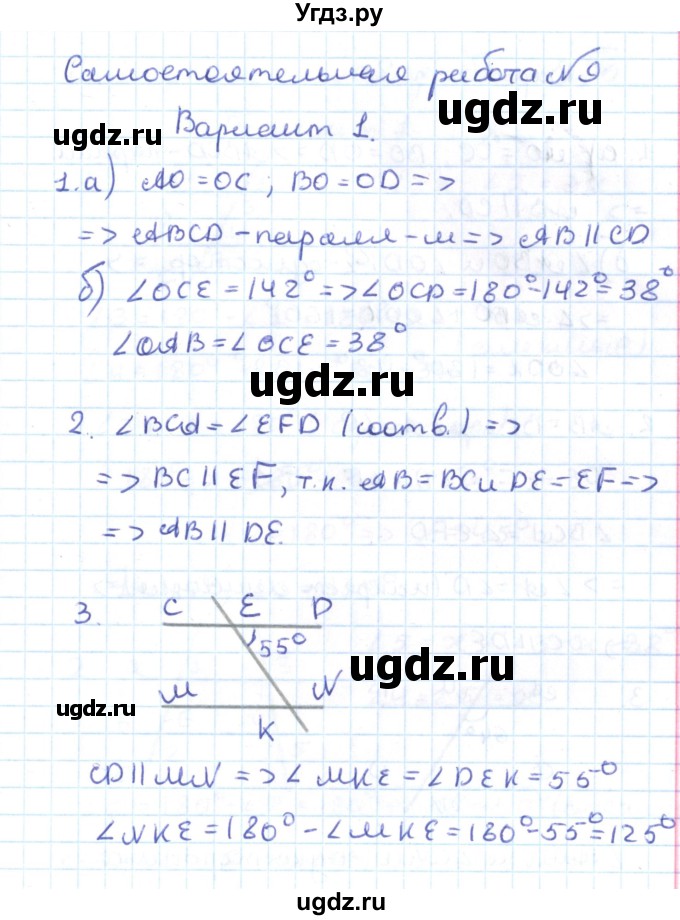 Угдз.ру
Самостоятельная работа №9
ugdz.ru
ugdz.ru
Вариант 1.
1. а) AO = OC ; BO = OD =>
=> ABCD - паралл-м => AB || CD
б) ∠OCE = 142° => ∠OCD = 180° - 142° = 38°
∠OAB = ∠OCE = 38°
ugdz.ru
2. ∠BCd = ∠EFD (соотв.) =>
=> BC || EF, т.к. AB = BC и DE = EF =>
=> AB || DE.
3.
C E D
55°
ugdz.ru
M N
ugdz.ru
K
CD || MN => ∠MKE = ∠DEK = 55°
∠NKE = 180° - ∠MKE = 180° - 55° = 125°
ugdz.ru
ugdz.ru